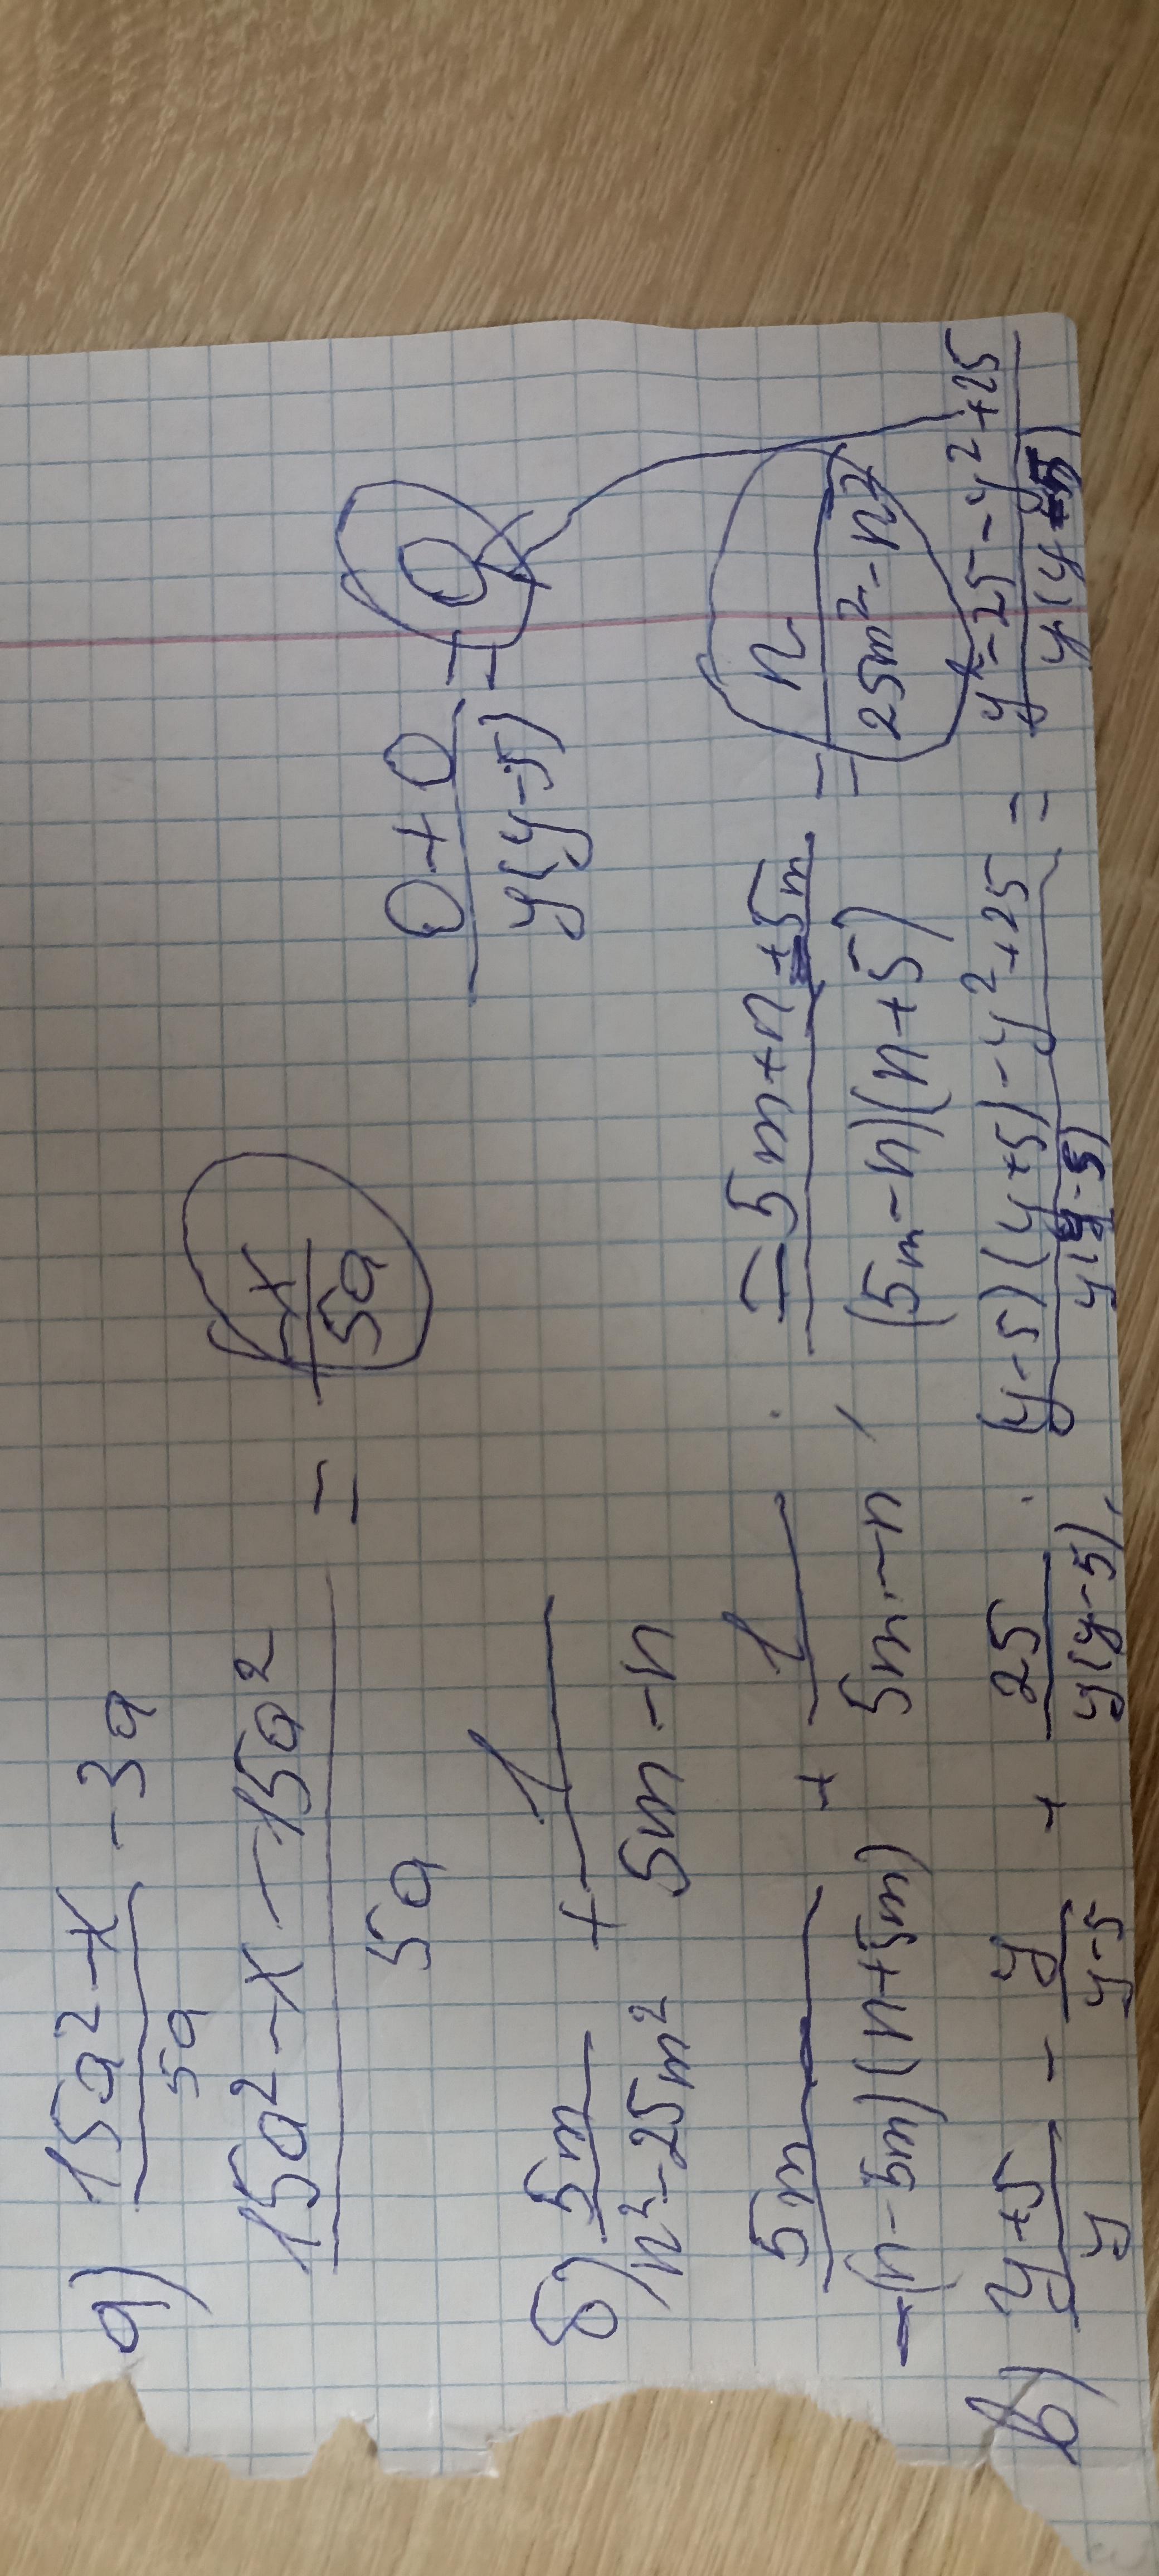 а) (15a² - x)/(5a) - 3a
(15a² - x - 15a²)/(5a) = (-x)/(5a)
б) (5m)/(n² - 25m²) + 1/(5m - n)
(5m)/(-(n - 5m)(n + 5m)) + 1/(5m - n) = (-5m + n + 5m)/((5m - n)(n + 5)) = n/(25m² - n²)
в) (y + 5)/y - y/(y - 5) + 25/(y(y - 5)) ; ((y - 5)(y + 5) - y² + 25)/(y(y - 5)) = (y² - 25 - y² + 25)/(y(y - 5))
(0 + 0)/(y(y - 5)) = 0